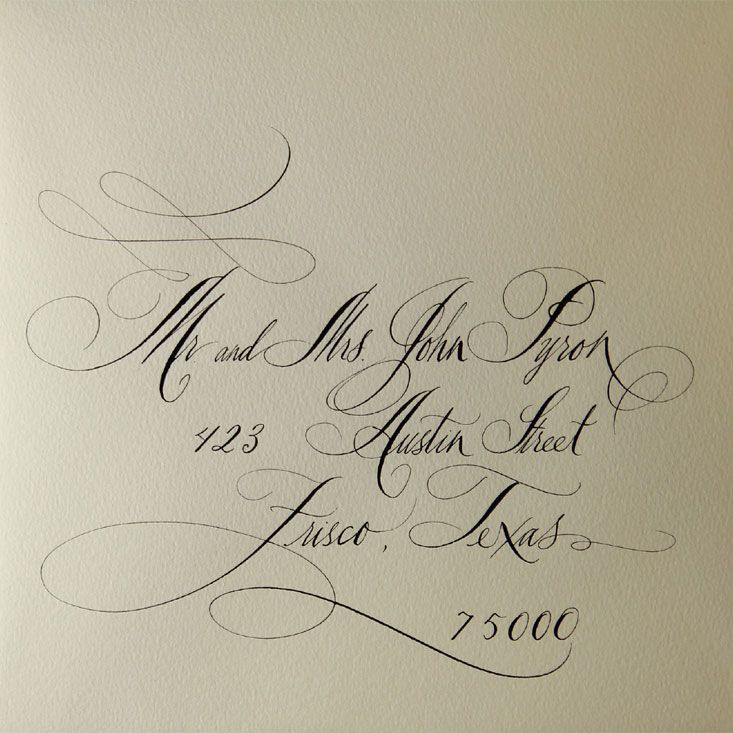 Mr and Mrs. John Pyron
423 Austin Street
Frisco, Texas
75000